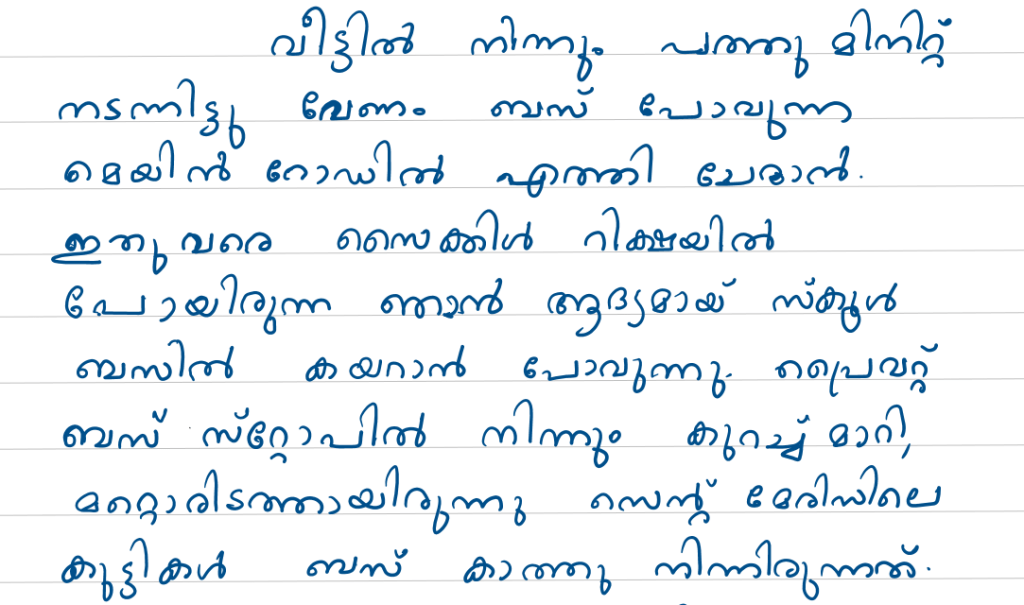 വീട്ടിൽ നിന്നും പത്തു മിനിറ്റ്
നടന്നിട്ടു വേണം ബസ് പോവുന്ന
മെയിൻ റോഡിൽ എത്തി ചേരാൻ.
ഇതുവരെ സൈക്കിൾ റിക്ഷയിൽ
പോയിരുന്ന ഞാൻ ആദ്യമായ് സ്കൂൾ
ബസിൽ കയറാൻ പോവുന്നു. പ്രൈവറ്റ്
ബസ് സ്റ്റോപിൽ നിന്നും കുറച്ച് മാറി,
മറ്റൊരിടത്തായിരുന്നു സെന്റ് മേരിസിലെ
കുട്ടികൾ ബസ് കാത്തു നിന്നിരുന്നത്.